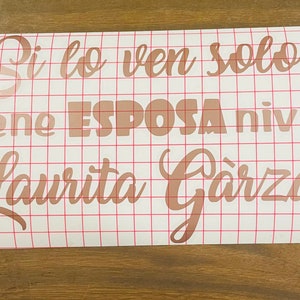 Si lo ven solo
ene ESPOSA niv
Laurita Gàrza